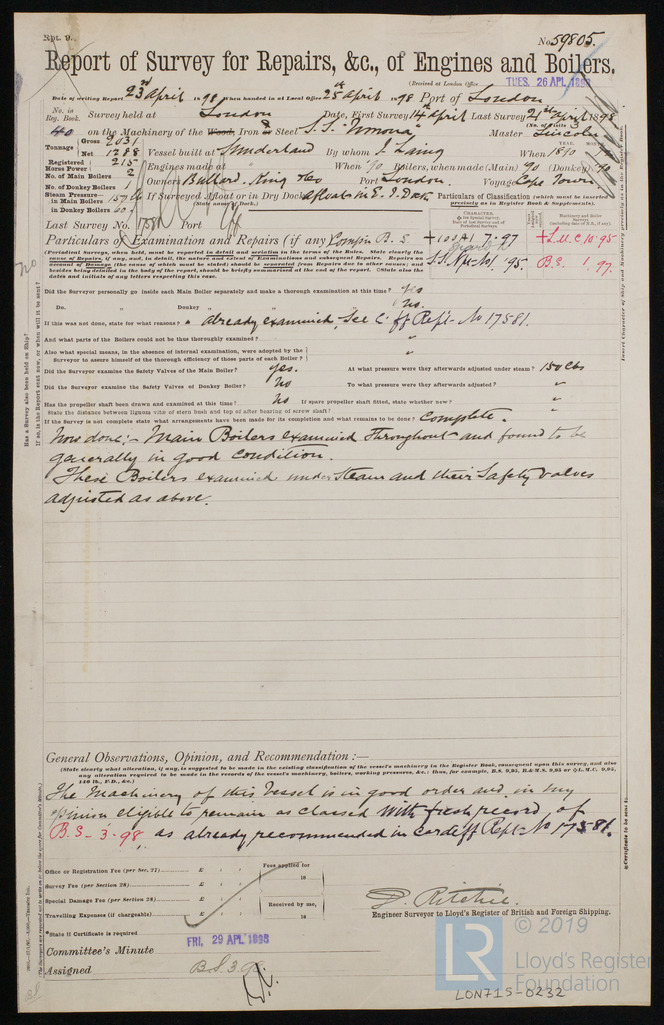 Rpt. 9.
No. 59805.
Report of Survey for Repairs, &c., of Engines and Boilers.
(Received at London Office TUES. 26 APL 1898
Date of writing Report 23rd April 1898 When handed in at Local Office 25th April 1898 Port of London
No. in Reg. Book. Survey held at London Date, First Survey 14th April Last Survey 21st April 1898
(No. of Visits 3)
40 on the Machinery of the Wood, Iron & Steel S.S. "Umona" Master Lincoln
Tonnage Gross 2031 Net 1288 Vessel built at Sunderland By whom J. Laing When 1890
Registered Horse Power 215 Engines made at " When 90 Boilers, when made (Main) 90 (Donkey) 90
No. of Main Boilers 2 Owners Bullard, King & Co Port London Voyage Cape Town
No. of Donkey Boilers 1
Steam Pressure— in Main Boilers 150 lbs If Surveyed Afloat or in Dry Dock Afloat in E. I. Dock
(State name of Dock.)
in Donkey Boilers
Particulars of Classification (which must be inserted precisely as in Register Book & Supplements).
Last Survey No. 17581 Port Cff
+100A1 7.97
S.S. No. 1 95
+L.M.C. 10.95
B.S. 1.97.
Particulars of Examination and Repairs (if any) Compn B.S.
(Periodical Surveys, when held, must be reported in detail and seriatim in the terms of the Rules. State clearly the cause of Repairs, if any, and, in detail, the nature and extent of Examinations and subsequent Repairs. Repairs on account of Damage (the cause of which must be stated) should be separated from Repairs due to other causes; and besides being detailed in the body of the report, should be briefly summarised at the end of the report. State also the dates and initials of any letters respecting this case.
Did the Surveyor personally go inside each Main Boiler separately and make a thorough examination at this time? Yes
Do. " Donkey " " " No.
If this was not done, state for what reasons? " Already examined, See Cff Rept No 17581.
And what parts of the Boilers could not be thus thoroughly examined? "
Also what special means, in the absence of internal examination, were adopted by the Surveyor to assure himself of the thorough efficiency of those parts of each Boiler? "
Did the Surveyor examine the Safety Valves of the Main Boiler? Yes. At what pressure were they afterwards adjusted under steam? 150 lbs
Did the Surveyor examine the Safety Valves of Donkey Boiler? No To what pressure were they afterwards adjusted? "
Has the propeller shaft been drawn and examined at this time? No If spare propeller shaft fitted, state whether new? "
State the distance between lignum vitæ of stern bush and top of after bearing of screw shaft? "
If the Survey is not complete state what arrangements have been made for its completion and what remains to be done? Complete.
Now done:- Main Boilers examined throughout and found to be
generally in good condition.
These Boilers examined under steam and their Safety valves
adjusted as above.
General Observations, Opinion, and Recommendation:—
(State clearly what alteration, if any, is suggested to be made in the existing classification of the vessel's machinery in the Register Book, consequent upon this survey, and also any alteration required to be made in the records of the vessel's machinery, boilers, working pressures, &c.: thus, for example, B.S. 9,95, B.&M.S. 9,95 or L.M.C. 9,95, 140 lb., F.D., &c.)
The Machinery of this Vessel is in good order and in my
opinion eligible to remain as classed with fresh record of
B.S - 3 - 98 as already recommended in Cardiff Rept No 17581.
Office or Registration Fee (per Sec. 27) £ : :
Survey Fee (per Section 28) £ : :
Special Damage Fee (per Section 28) £ : :
Travelling Expenses (if chargeable) £ : :
Fees applied for 18
Received by me, 18
State if Certificate is required
Committee's Minute FRI. 29 APL 1898
Assigned B.S. 3.98
D. Ritchie.
Engineer Surveyor to Lloyd's Register of British and Foreign Shipping.
© 2019
LR
Lloyd's Register
Foundation
LON715-0232